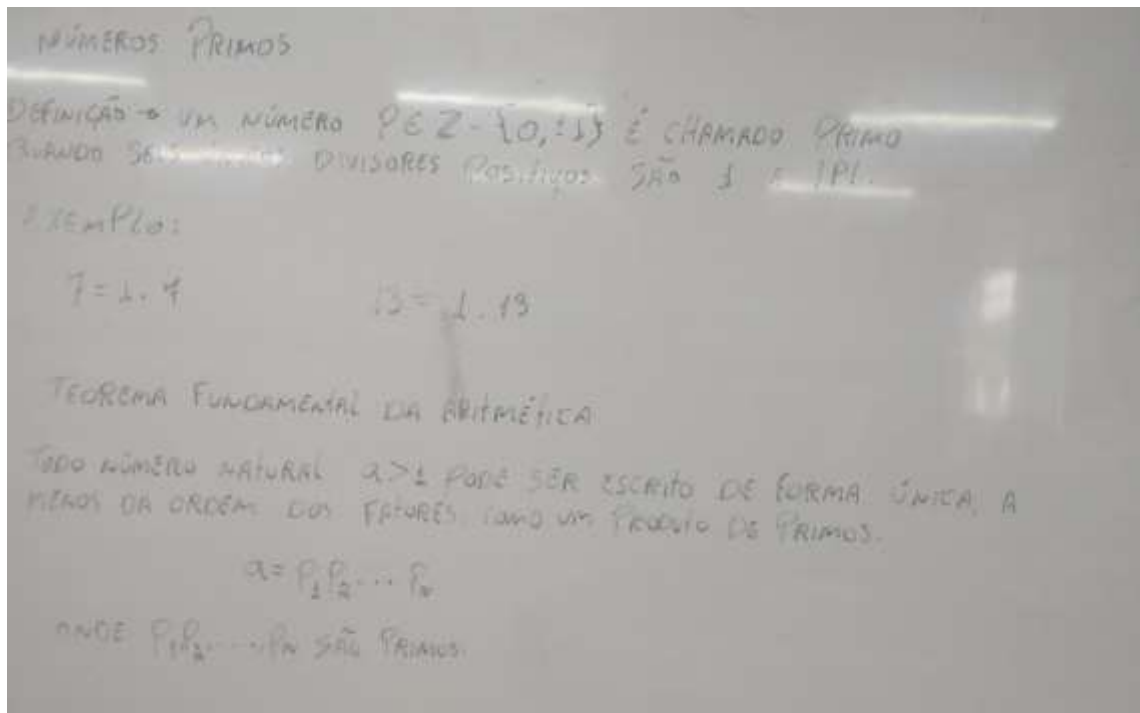 NÚMEROS PRIMOS
DEFINIÇÃO → UM NÚMERO P ∈ Z - {0, ±1} É CHAMADO PRIMO
QUANDO SEUS DIVISORES POSITIVOS SÃO 1 E |P|.
EXEMPLO:
7 = 1 . 7 13 = 1 . 13
TEOREMA FUNDAMENTAL DA ARITMÉTICA
TODO NÚMERO NATURAL a > 1 PODE SER ESCRITO DE FORMA ÚNICA, A
MENOS DA ORDEM DOS FATORES, COMO UM PRODUTO DE PRIMOS.
a = P₁P₂ ... Pₙ
ONDE P₁P₂ ..., Pₙ SÃO PRIMOS.